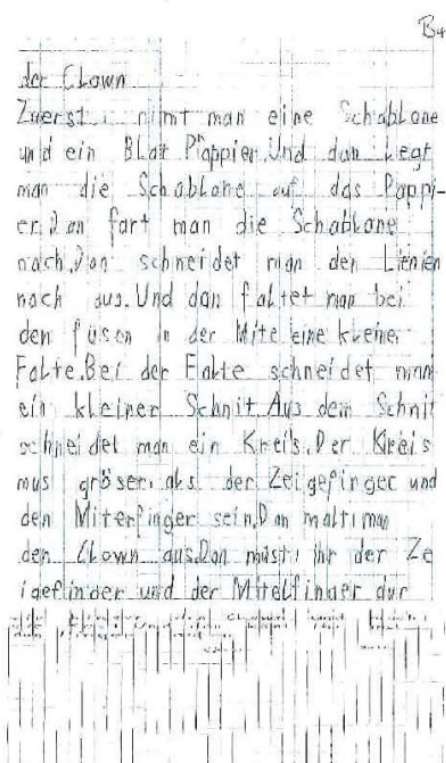 B4
der Clown
Zuerst nimt man eine Schablone
und ein Blat Piappier. Und dan legt
man die Schablone auf das Pappi-
er. Dan fart man die Schablone
nach. Dan schneidet man den Lienien
nach aus. Und dan faltet man bei
den füsen in der Mite eine kleine
Falte. Bei der Falte schneidet man
ein kleiner Schnit. Aus dem Schnit
schneidet man ein Kreis. Der Kreis
mus gröser als der Zeigefinger und
den Mitenfinger sein. Dan malt man
den Clown aus. Dan müst ihr der Ze
igefinder und der Mitelfinger dur